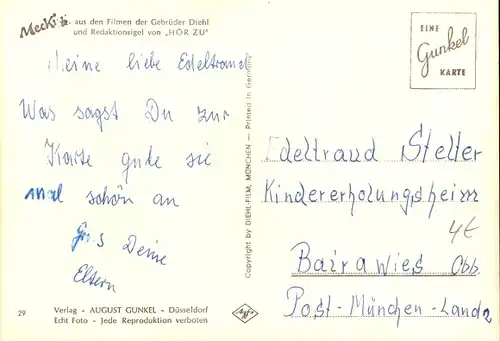 Mecki aus den Filmen der Gebrüder Diehl
und Redaktionsigel von „HÖR ZU"
Meine liebe Edeltraud
Was sagst Du zur
Karte gute sie
mal schön an
Grus Deine
Eltern
29
Verlag - AUGUST GUNKEL - Düsseldorf
Echt Foto - Jede Reproduktion verboten
Copyright by DIEHL-FILM, MÜNCHEN — Printed in Germany
EINE
Gunkel
KARTE
Edeltraud Steller
Kindererholungsheim
4€
Bairawies Obb.
Post-München-Land 2